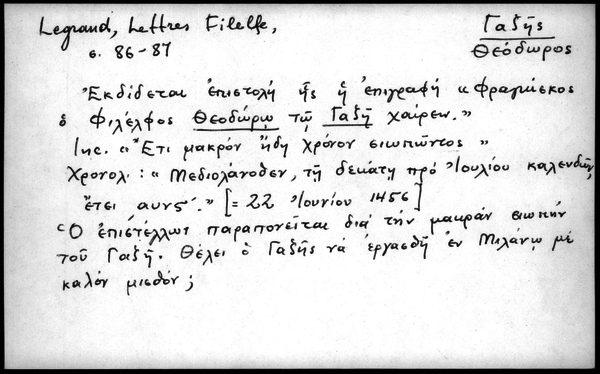 Legrand, Lettres Filelfe,
σ. 86-87
Γαζῆς
Θεόδωρος
Ἐκδίδεται ἐπιστολή ἧς ἡ ἐπιγραφή « Φραγκίσκος
ὁ Φιλέλφος Θεοδώρῳ τῷ Γαζῇ χαίρειν.»
Inc. «Ἔτι μακρόν ἤδη χρόνον σιωπῶντος »
Χρονολ. : « Μεδιολάνοθεν, τῇ δεκάτῃ πρό Ἰουλίου καλενδῶν,
ἔτει αυνς´.» [= 22 Ἰουνίου 1456]
Ὁ ἐπιστέλλων παραπονεῖται διά τήν μακράν σιωπήν
τοῦ Γαζῆ. Θέλει ὁ Γαζῆς νά ἐργασθῇ ἐν Μιλάνῳ μέ
καλόν μισθόν ;